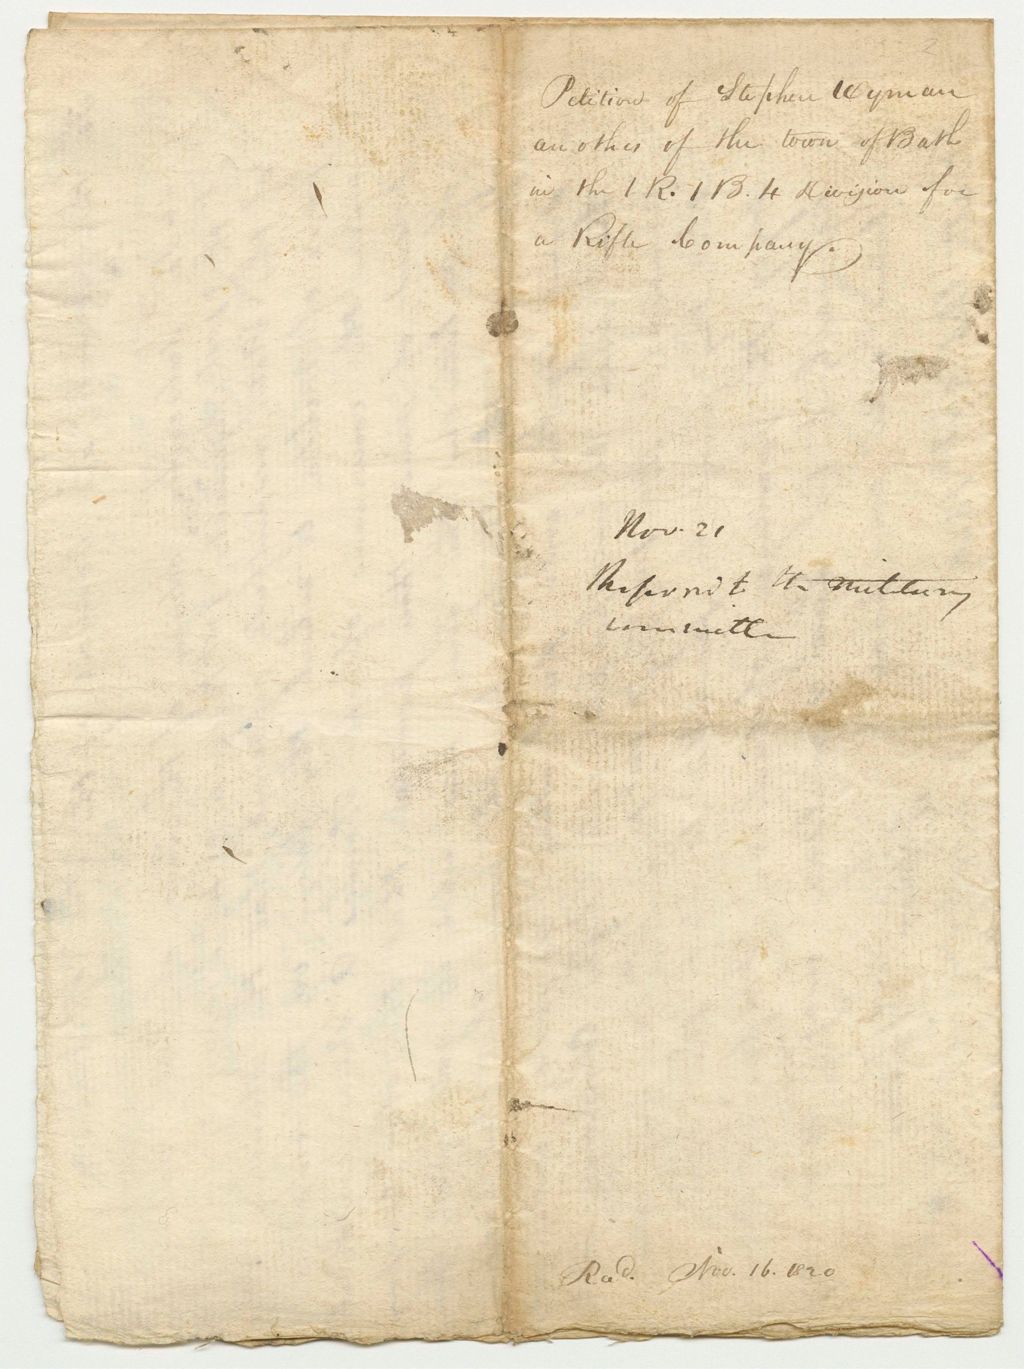 2
Petition of Stephen Wyman
an others of the town of Bath
in the 1 R. 1 B. 4 Division for
a Rifle Company.
Nov. 21
Referrd to the military
committe
Recd. Nov. 16. 1820